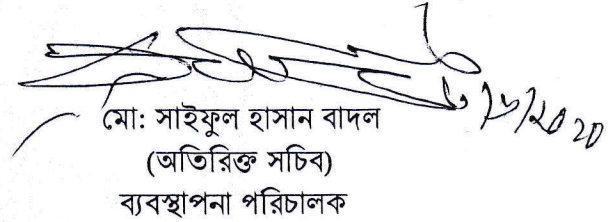 মো: সাইফুল হাসান বাদল
(অতিরিক্ত সচিব)
ব্যবস্থাপনা পরিচালক